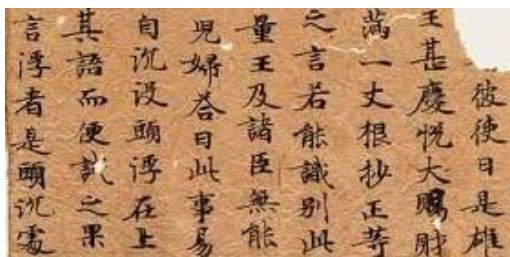 彼使曰是雄
王甚慶悅大賜財
滿一丈根抄正等
之言若能識別此
量王及諸臣無能
兒婦荅曰此事易
自沉没頭浮在上
其語而便試之果
言浮者是頭沉處